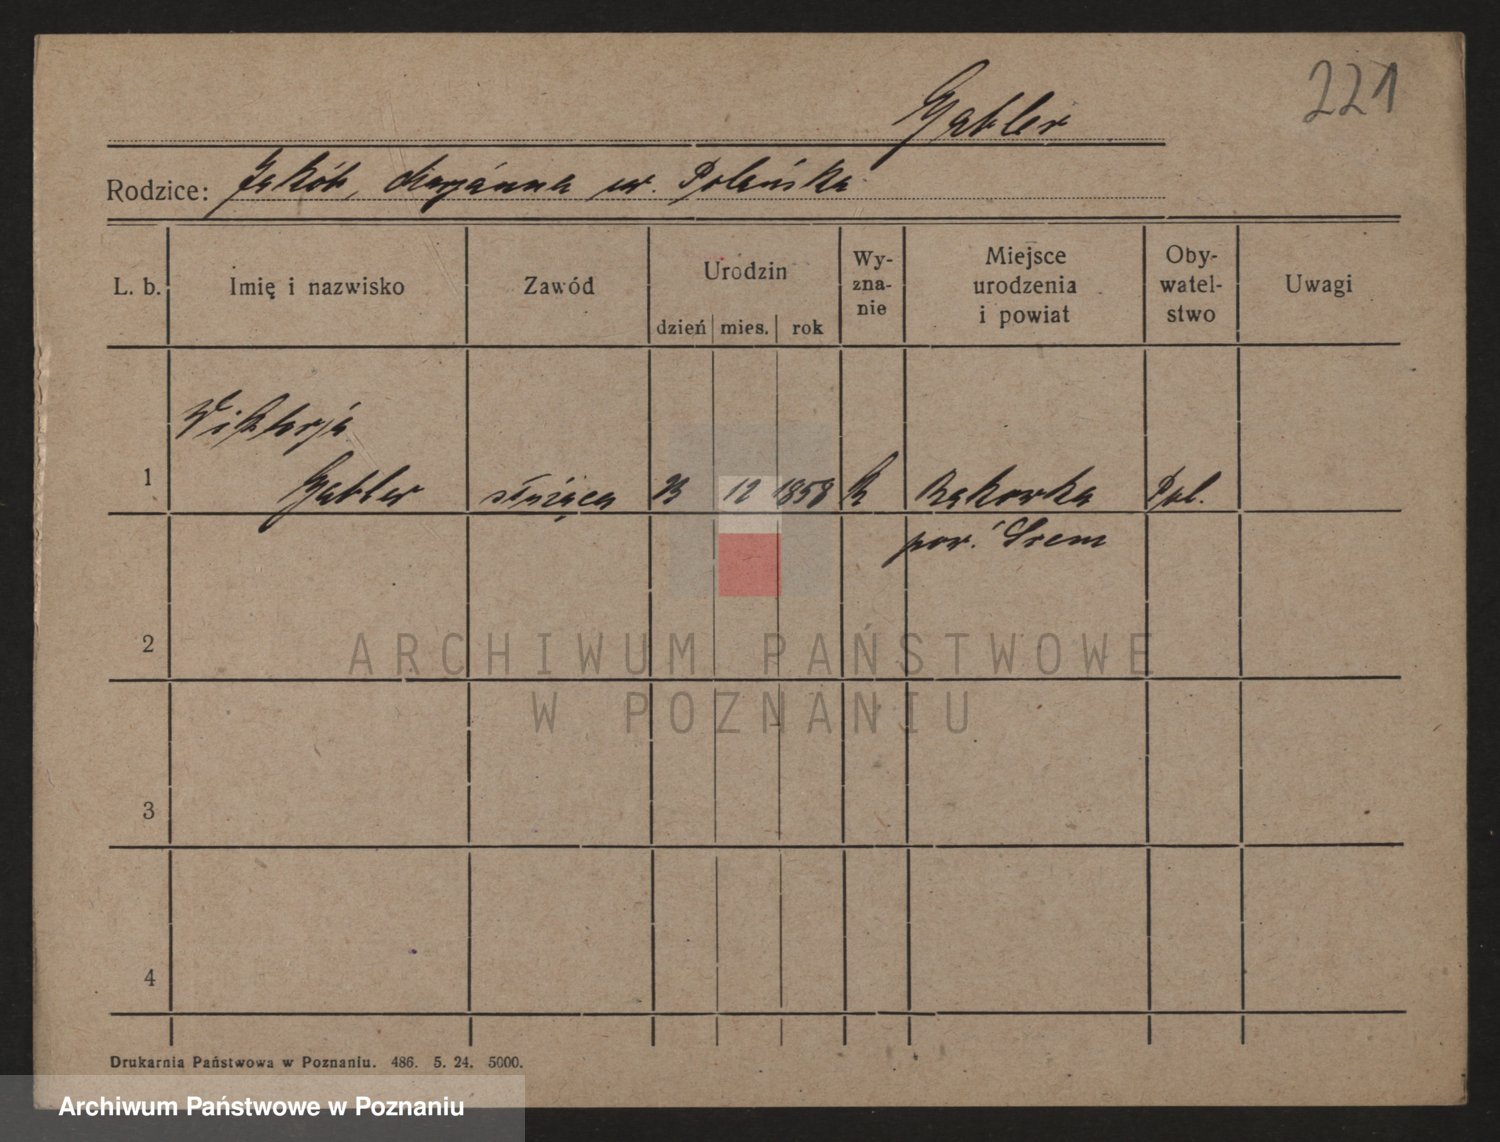 221
Gabler
Rodzice: Jakób, Maryanna ur. Polańska
L. b. Imię i nazwisko Zawód Urodzin dzień mies. rok Wy-zna-nie Miejsce urodzenia i powiat Oby-watel-stwo Uwagi
Wiktorja
1 Gabler służąca 12 1858 R Bąkowka Pol.
pow. Śrem
2
ARCHIWUM PAŃSTWOWE
W POZNANIU
3
4
Drukarnia Państwowa w Poznaniu. 486. 5. 24. 5000.
Archiwum Państwowe w Poznaniu